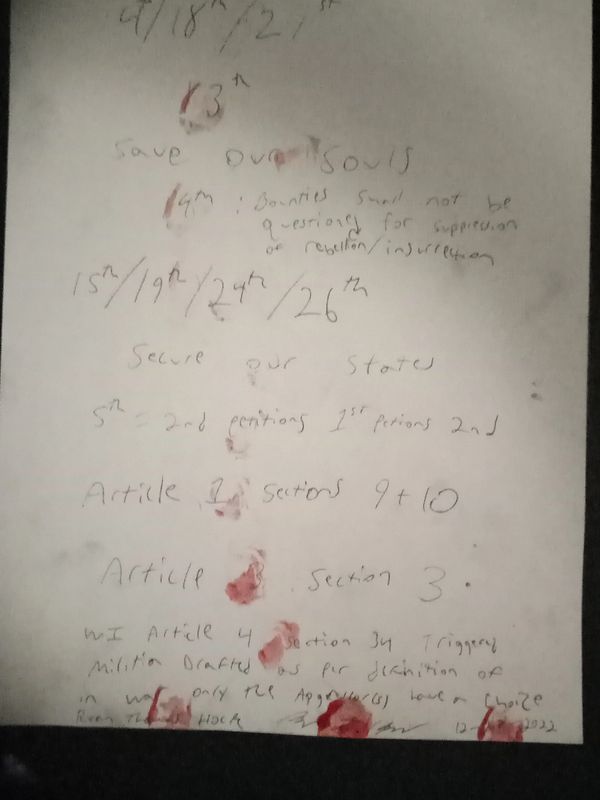 4/18th/21st
13th
Save our Souls
14th : Bounties shall not be
questioned for suppression
of rebellion/insurrection
15th/19th/24th/26th
Secure our States
5th = 2nd petitions 1st petions 2nd
Article 1 sections 9 + 10
Article 3 section 3.
WI Article 4 section 34 Triggered
Militia Drafted as per definition of
in war only the Aggressor(s) have a choice
2022